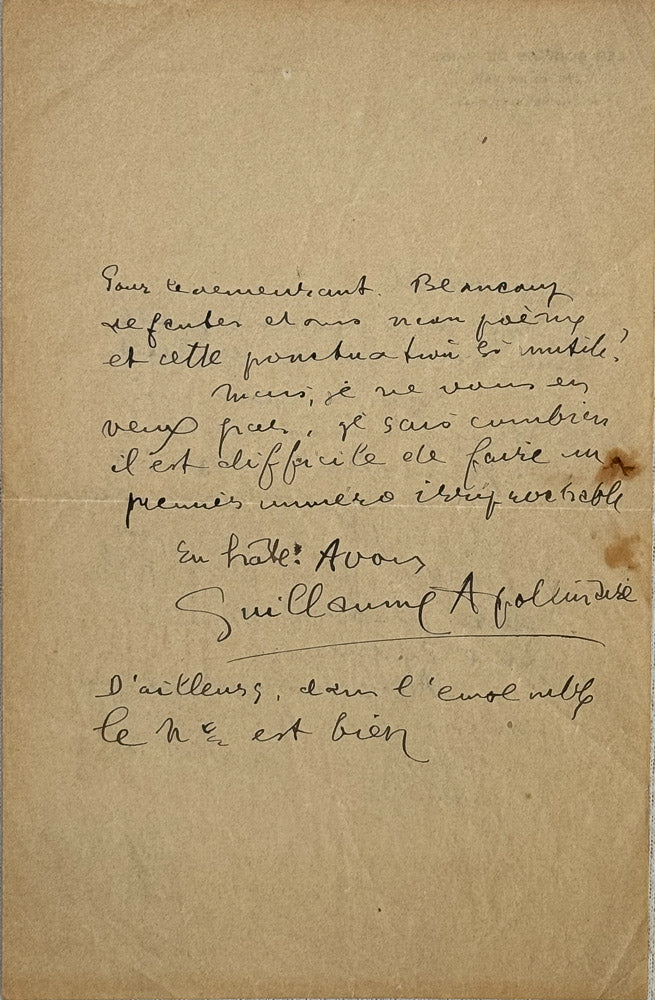 Pour le demeurant. Beaucoup
de fautes dans mon poème
et cette ponctuation si inutile!
Mais, je ne vous en
veux pas, je sais combien
il est difficile de faire un
premier numéro irréprochable
En hâte. A vous
Guillaume Apollinaire
D'ailleurs, dans l'ensemble
le N° est bien